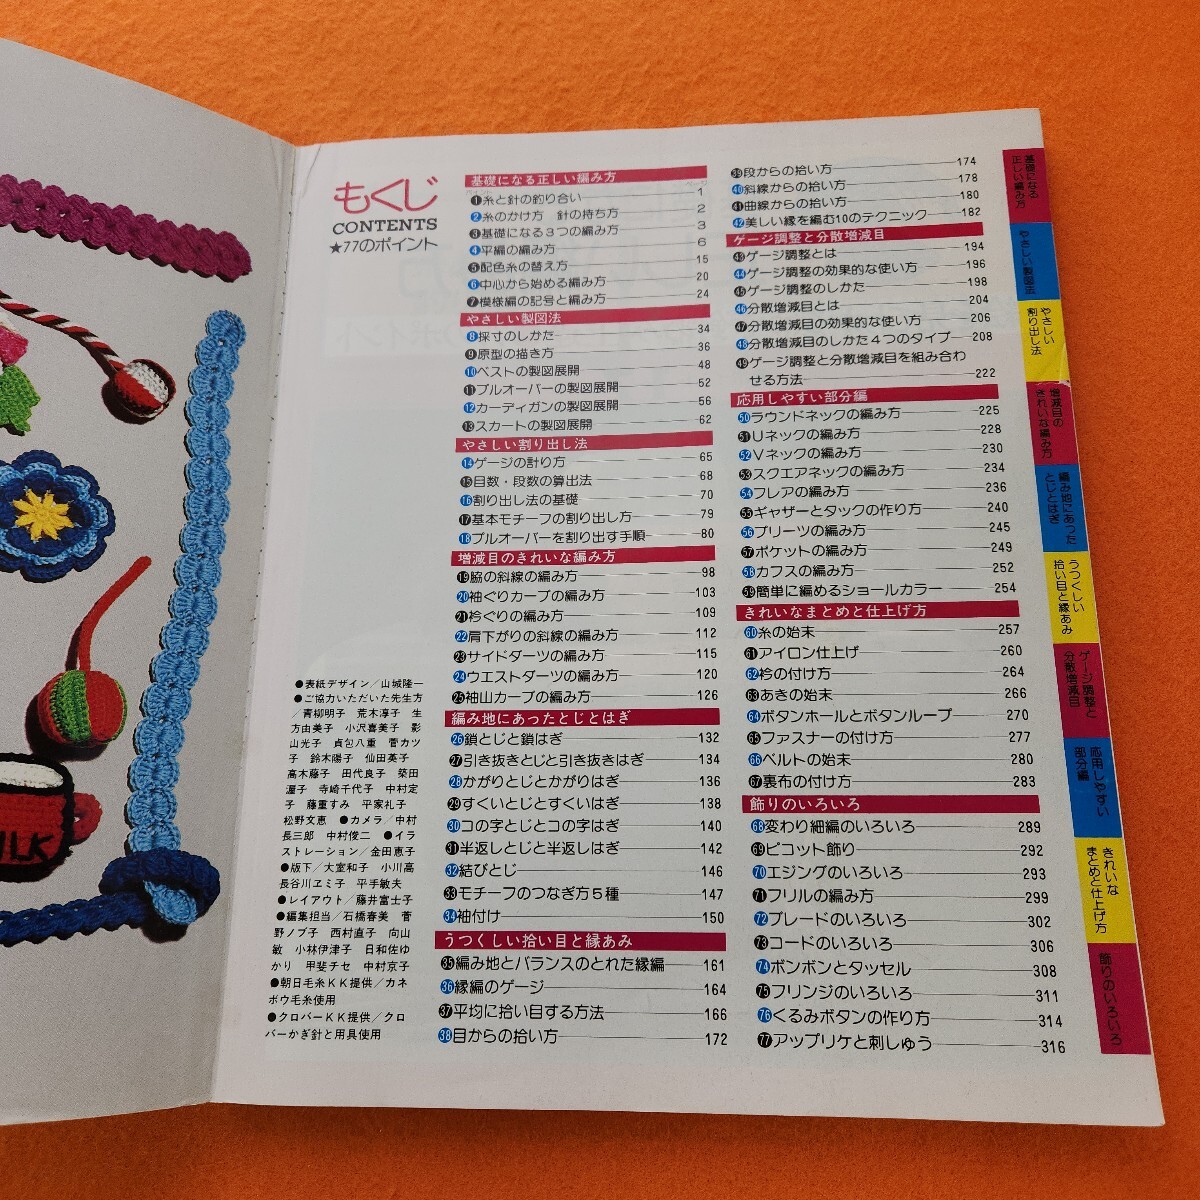 もくじ
CONTENTS
★77のポイント
基礎になる正しい編み方
❶糸と針の釣り合い 1
❷糸のかけ方 針の持ち方 2
❸基礎になる3つの編み方 3
❹平編の編み方 6
❺配色糸の替え方 15
❻中心から始める編み方 20
❼模様編の記号と編み方 24
やさしい製図法
❽採寸のしかた 34
❾原型の描き方 36
❿ベストの製図展開 48
⓫プルオーバーの製図展開 52
⓬カーディガンの製図展開 56
⓭スカートの製図展開 62
やさしい割り出し法
⓮ゲージの計り方 65
⓯目数・段数の算出法 68
⓰割り出し法の基礎 70
⓱基本モチーフの割り出し方 79
⓲プルオーバーを割り出す手順 80
増減目のきれいな編み方
⓳脇の斜線の編み方 98
⓴袖ぐりカーブの編み方 103
㉑衿ぐりの編み方 109
㉒肩下がりの斜線の編み方 112
㉓サイドダーツの編み方 115
㉔ウエストダーツの編み方 120
㉕袖山カーブの編み方 126
編み地にあったとじとはぎ
㉖鎖とじと鎖はぎ 132
㉗引き抜きとじと引き抜きはぎ 134
㉘かがりとじとかがりはぎ 136
㉙すくいとじとすくいはぎ 138
㉚コの字とじとコの字はぎ 140
㉛半返しとじと半返しはぎ 142
㉜結びとじ 146
㉝モチーフのつなぎ方5種 147
㉞袖付け 150
うつくしい拾い目と縁あみ
㉟編み地とバランスのとれた縁編 161
㊱縁編のゲージ 164
㊲平均に拾い目する方法 166
㊳目からの拾い方 172
㊴段からの拾い方 174
㊵斜線からの拾い方 178
㊶曲線からの拾い方 180
㊷美しい縁を編む10のテクニック 182
ゲージ調整と分散増減目
㊸ゲージ調整とは 194
㊹ゲージ調整の効果的な使い方 196
㊺ゲージ調整のしかた 198
㊻分散増減目とは 204
㊼分散増減目の効果的な使い方 206
㊽分散増減目のしかた4つのタイプ 208
㊾ゲージ調整と分散増減目を組み合わ
せる方法 222
応用しやすい部分編
㊿ラウンドネックの編み方 225
51Uネックの編み方 228
52Vネックの編み方 230
53スクエアネックの編み方 234
54フレアの編み方 236
55ギャザーとタックの作り方 240
56プリーツの編み方 245
57ポケットの編み方 249
58カフスの編み方 252
59簡単に編めるショールカラー 254
きれいなまとめと仕上げ方
60糸の始末 257
61アイロン仕上げ 260
62衿の付け方 264
63あきの始末 266
64ボタンホールとボタンループ 270
65ファスナーの付け方 277
66ベルトの始末 280
67裏布の付け方 283
飾りのいろいろ
68変わり細編のいろいろ 289
69ピコット飾り 292
70エジングのいろいろ 293
71フリルの編み方 299
72ブレードのいろいろ 302
73コードのいろいろ 306
74ボンボンとタッセル 308
75フリンジのいろいろ 311
76くるみボタンの作り方 314
77アップリケと刺しゅう 316
●表紙デザイン／山城隆一
●ご協力いただいた先生方
／青柳明子 荒木淳子 生
方由美子 小沢喜美子 影
山光子 貞包八重 菅カツ
子 鈴木陽子 仙田英子
高木藤子 田代良子 築田
渥子 寺崎千代子 中村定
子 藤重すみ 平家礼子
松野文恵 ●カメラ／中村
長三郎 中村俊二 ●イラ
ストレーション／金田恵子
●版下／大室和子 小川高
長谷川ヱミ子 平手敏夫
●レイアウト／藤井富士子
●編集担当／石橋春美 菅
野ノブ子 西村直子 向山
敏 小林伊津子 日和佐ゆ
かり 甲斐チセ 中村京子
●朝日毛糸KK提供／カネ
ボウ毛糸使用
●クロバーKK提供／クロ
バーかぎ針と用具使用
基礎になる
正しい編み方
やさしい製図法
やさしい
割り出し法
増減目の
きれいな編み方
編み地にあった
とじとはぎ
うつくしい
拾い目と縁あみ
ゲージ調整と
分散増減目
応用しやすい
部分編
きれいな
まとめと仕上げ方
飾りのいろいろ